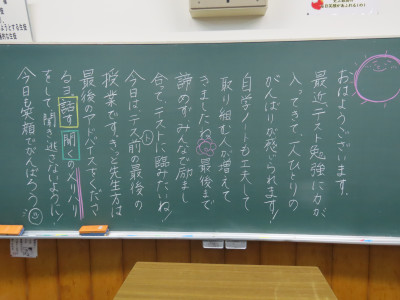 おはようございます。
最近、テスト勉強に力が
入ってきて、一人ひとりの
がんばりが感じられます！
自学ノートも工夫して
取り組む人が増えて
きましたね。最後まで
諦めずみんなで励まし
合って、テストに臨みたいね！
今日は、テスト前の最後の
授業です。きっと先生方は
最後のアドバイスをくださ
るヨ。話す聞くのメリハリ
をして、聞き逃さないように！
今日も笑顔でがんばろう